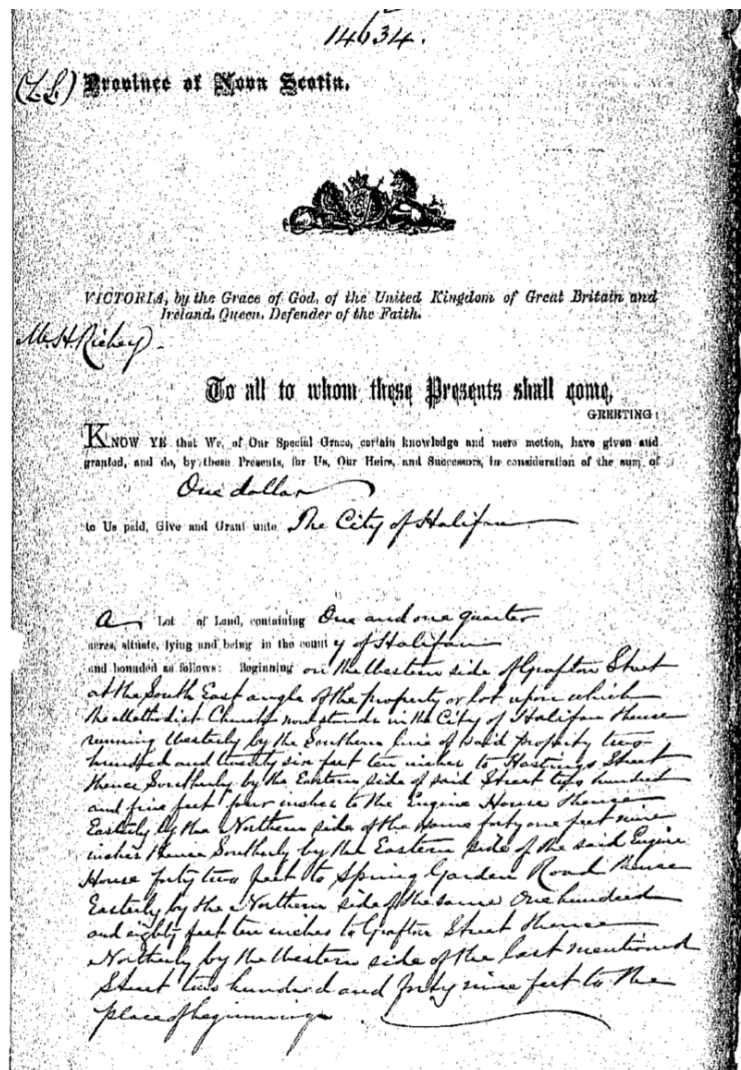 14634.
(L.S.) Province of Nova Scotia.
VICTORIA, by the Grace of God, of the United Kingdom of Great Britain and
Ireland, Queen, Defender of the Faith.
M. H. Richey.
To all to whom these Presents shall come,
GREETING:
KNOW YE that We, of Our Special Grace, certain knowledge and mere motion, have given and
granted, and do, by these Presents, for Us, Our Heirs, and Successors, in consideration of the sum of
One dollar
to Us paid, Give and Grant unto The City of Halifax
A Lot of Land, containing One and one quarter
acres, situate, lying and being in the county of Halifax
and bounded as follows: Beginning on the Western side of Grafton Street
at the South East angle of the property or lot upon which
the Methodist Church now stands in the City of Halifax thence
running Westerly by the Southern line of said property two
hundred and twenty six feet ten inches to Hastings Street
thence Southerly by the Eastern side of said Street two hundred
and five feet four inches to the Engine House thence
Easterly by the Northern side of the same forty one feet nine
inches thence Southerly by the Eastern side of the said Engine
House forty two feet to Spring Garden Road thence
Easterly by the Northern side of the same One hundred
and eighty feet ten inches to Grafton Street thence
Northerly by the Western side of the last mentioned
Street two hundred and forty nine feet to the
place of beginning